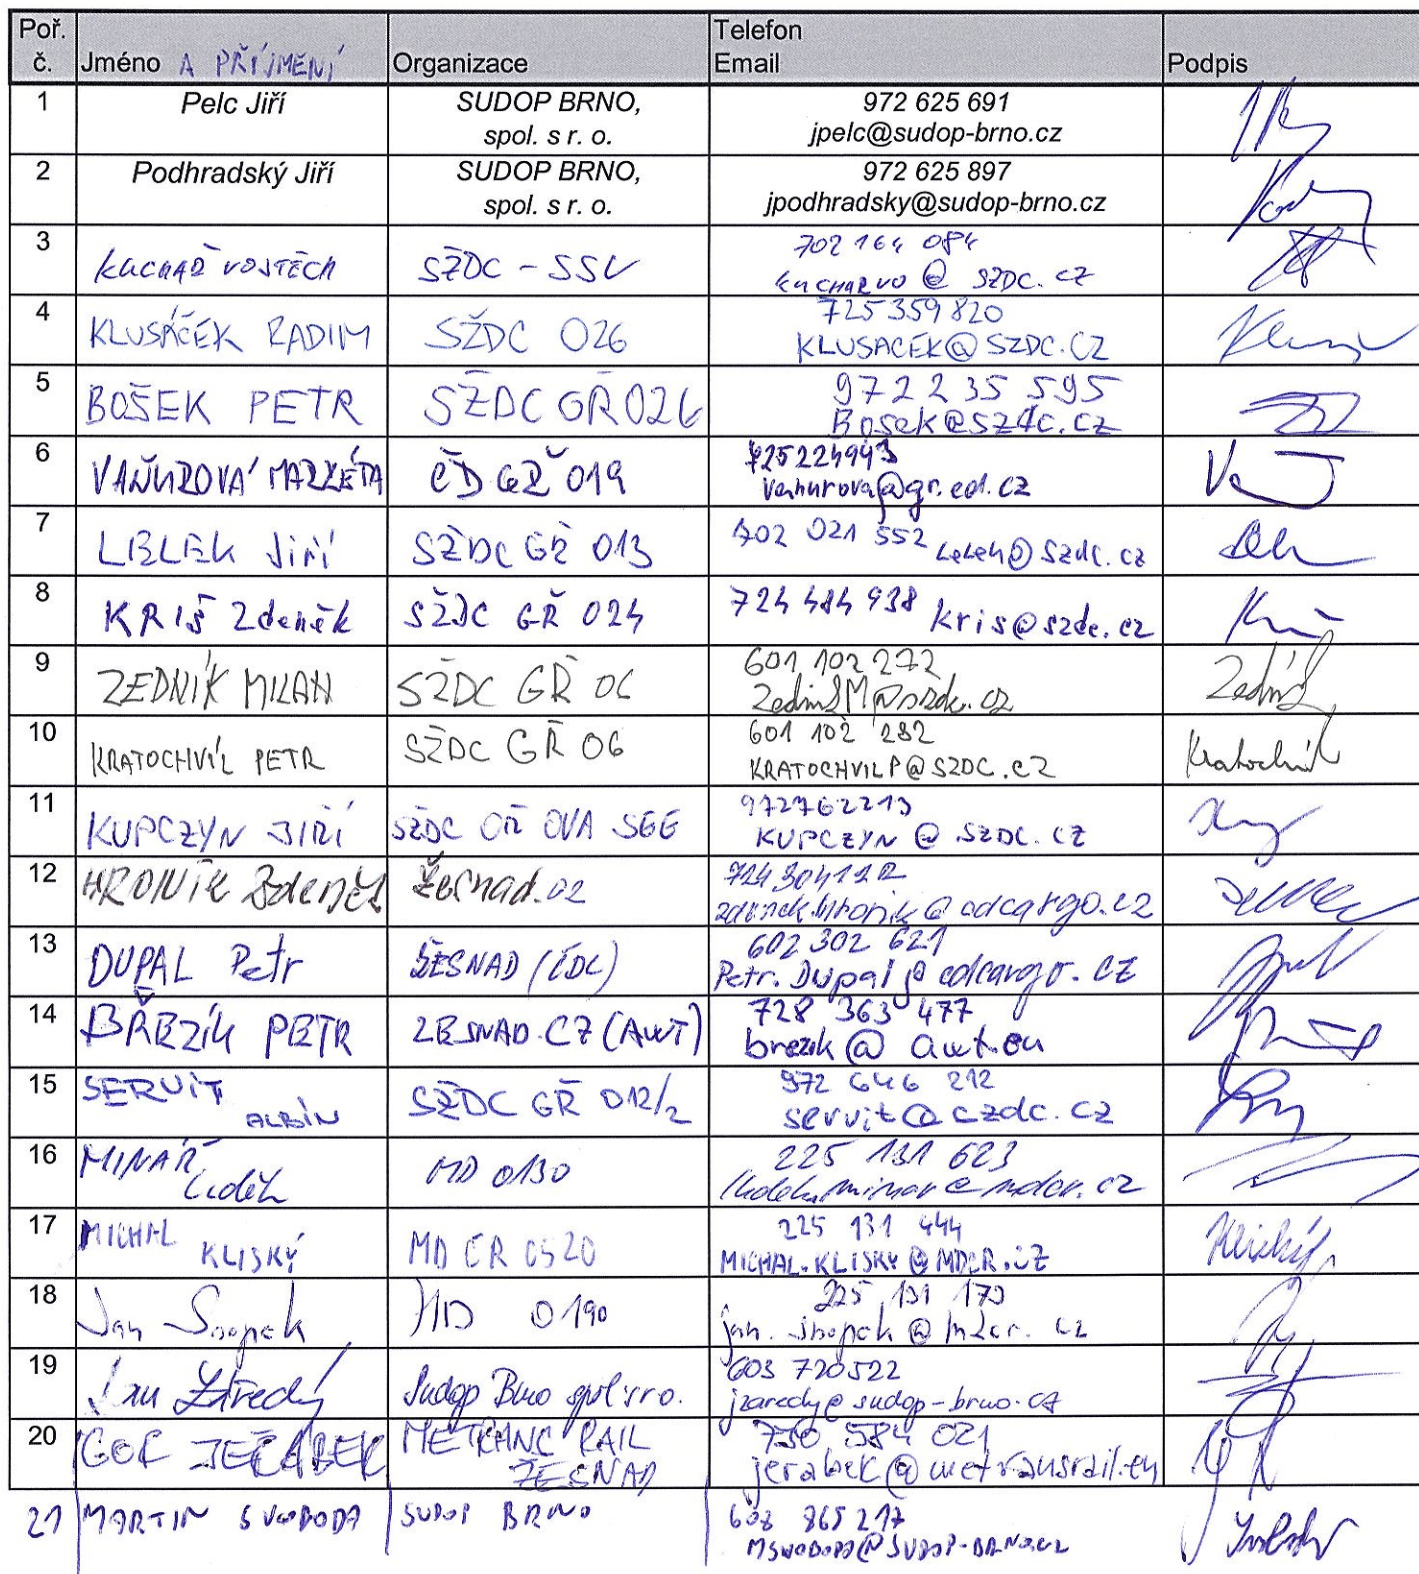 Poř. č. Jméno A PŘÍJMENÍ Organizace Telefon Email Podpis
1 Pelc Jiří SUDOP BRNO, spol. s r. o. 972 625 691 jpelc@sudop-brno.cz
2 Podhradský Jiří SUDOP BRNO, spol. s r. o. 972 625 897 jpodhradsky@sudop-brno.cz
3 KUCHAŘ VOJTĚCH SŽDC - SSV 702 164 084 KUCHARVO@SZDC.CZ
4 KLUSÁČEK RADIM SŽDC O26 725 359 820 KLUSACEK@SZDC.CZ
5 BOŠEK PETR SŽDC GŘ O26 972 235 595 Bosek@szdc.cz
6 VAŇUROVÁ MARKÉTA ČD GŘ O19 725224943 vanurova@gr.cd.cz
7 LELEK Jiří SŽDC GŘ O13 702 021 552 Lelek@szdc.cz
8 KRIŠ Zdeněk SŽDC GŘ O24 724 484 938 kris@szdc.cz
9 ZEDNÍK MILAN SŽDC GŘ O6 601 102 272 ZednikM@szdc.cz Zedník
10 KRATOCHVÍL PETR SŽDC GŘ O6 601 102 282 KRATOCHVILP@SZDC.CZ Kratochvíl
11 KUPCZYN JIŘÍ SŽDC OŘ OVA SEE 972762213 KUPCZYN@SZDC.CZ
12 HRONÍK Zdeněk Žesnad.cz zdenek.hronik@cdcargo.cz
13 DUPAL Petr ŽESNAD (ČDC) 602 302 621 Petr.Dupal@cdcargo.cz
14 BŘEZÍK PETR ZESNAD.CZ (AWT) 728 363 477 brezik@awt.eu
15 SERVÍT ALBÍN SŽDC GŘ O12/2 972 646 212 servit@czdc.cz
16 MINÁŘ Luděk MD O130 225 131 623 ludek.minar@mdcr.cz
17 MICHAL KLISKÝ MD ČR O520 225 131 444 MICHAL.KLISKY@MDCR.CZ
18 Jan Snopek MD O190 225 131 173 jan.snopek@mdcr.cz
19 Jan Zářecký Sudop Brno spol s r.o. 603 720522 jzarecky@sudop-brno.cz
20 IGOR JEŘÁBEK METRANS RAIL ŽESNAD 730 584 021 jerabek@metransrail.eu
21 MARTIN SVOBODA SUDOP BRNO 608 865 217 MSVOBODA@SUDOP-BRNO.CZ